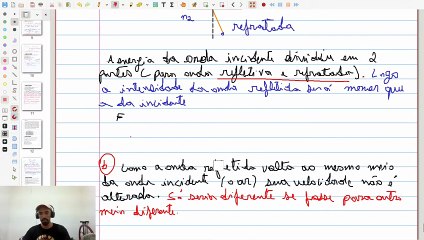 n2
refratada
A energia da onda incidente dividiu em 2
partes ( para onda refletiva e refratada). Logo
a intensidade da onda refletida será menor que
a da incidente
F
b) Como a onda refletida volta ao mesmo meio
da onda incidente (o ar) sua velocidade não é
alterada. Só seria diferente se fosse para outro
meio diferente.